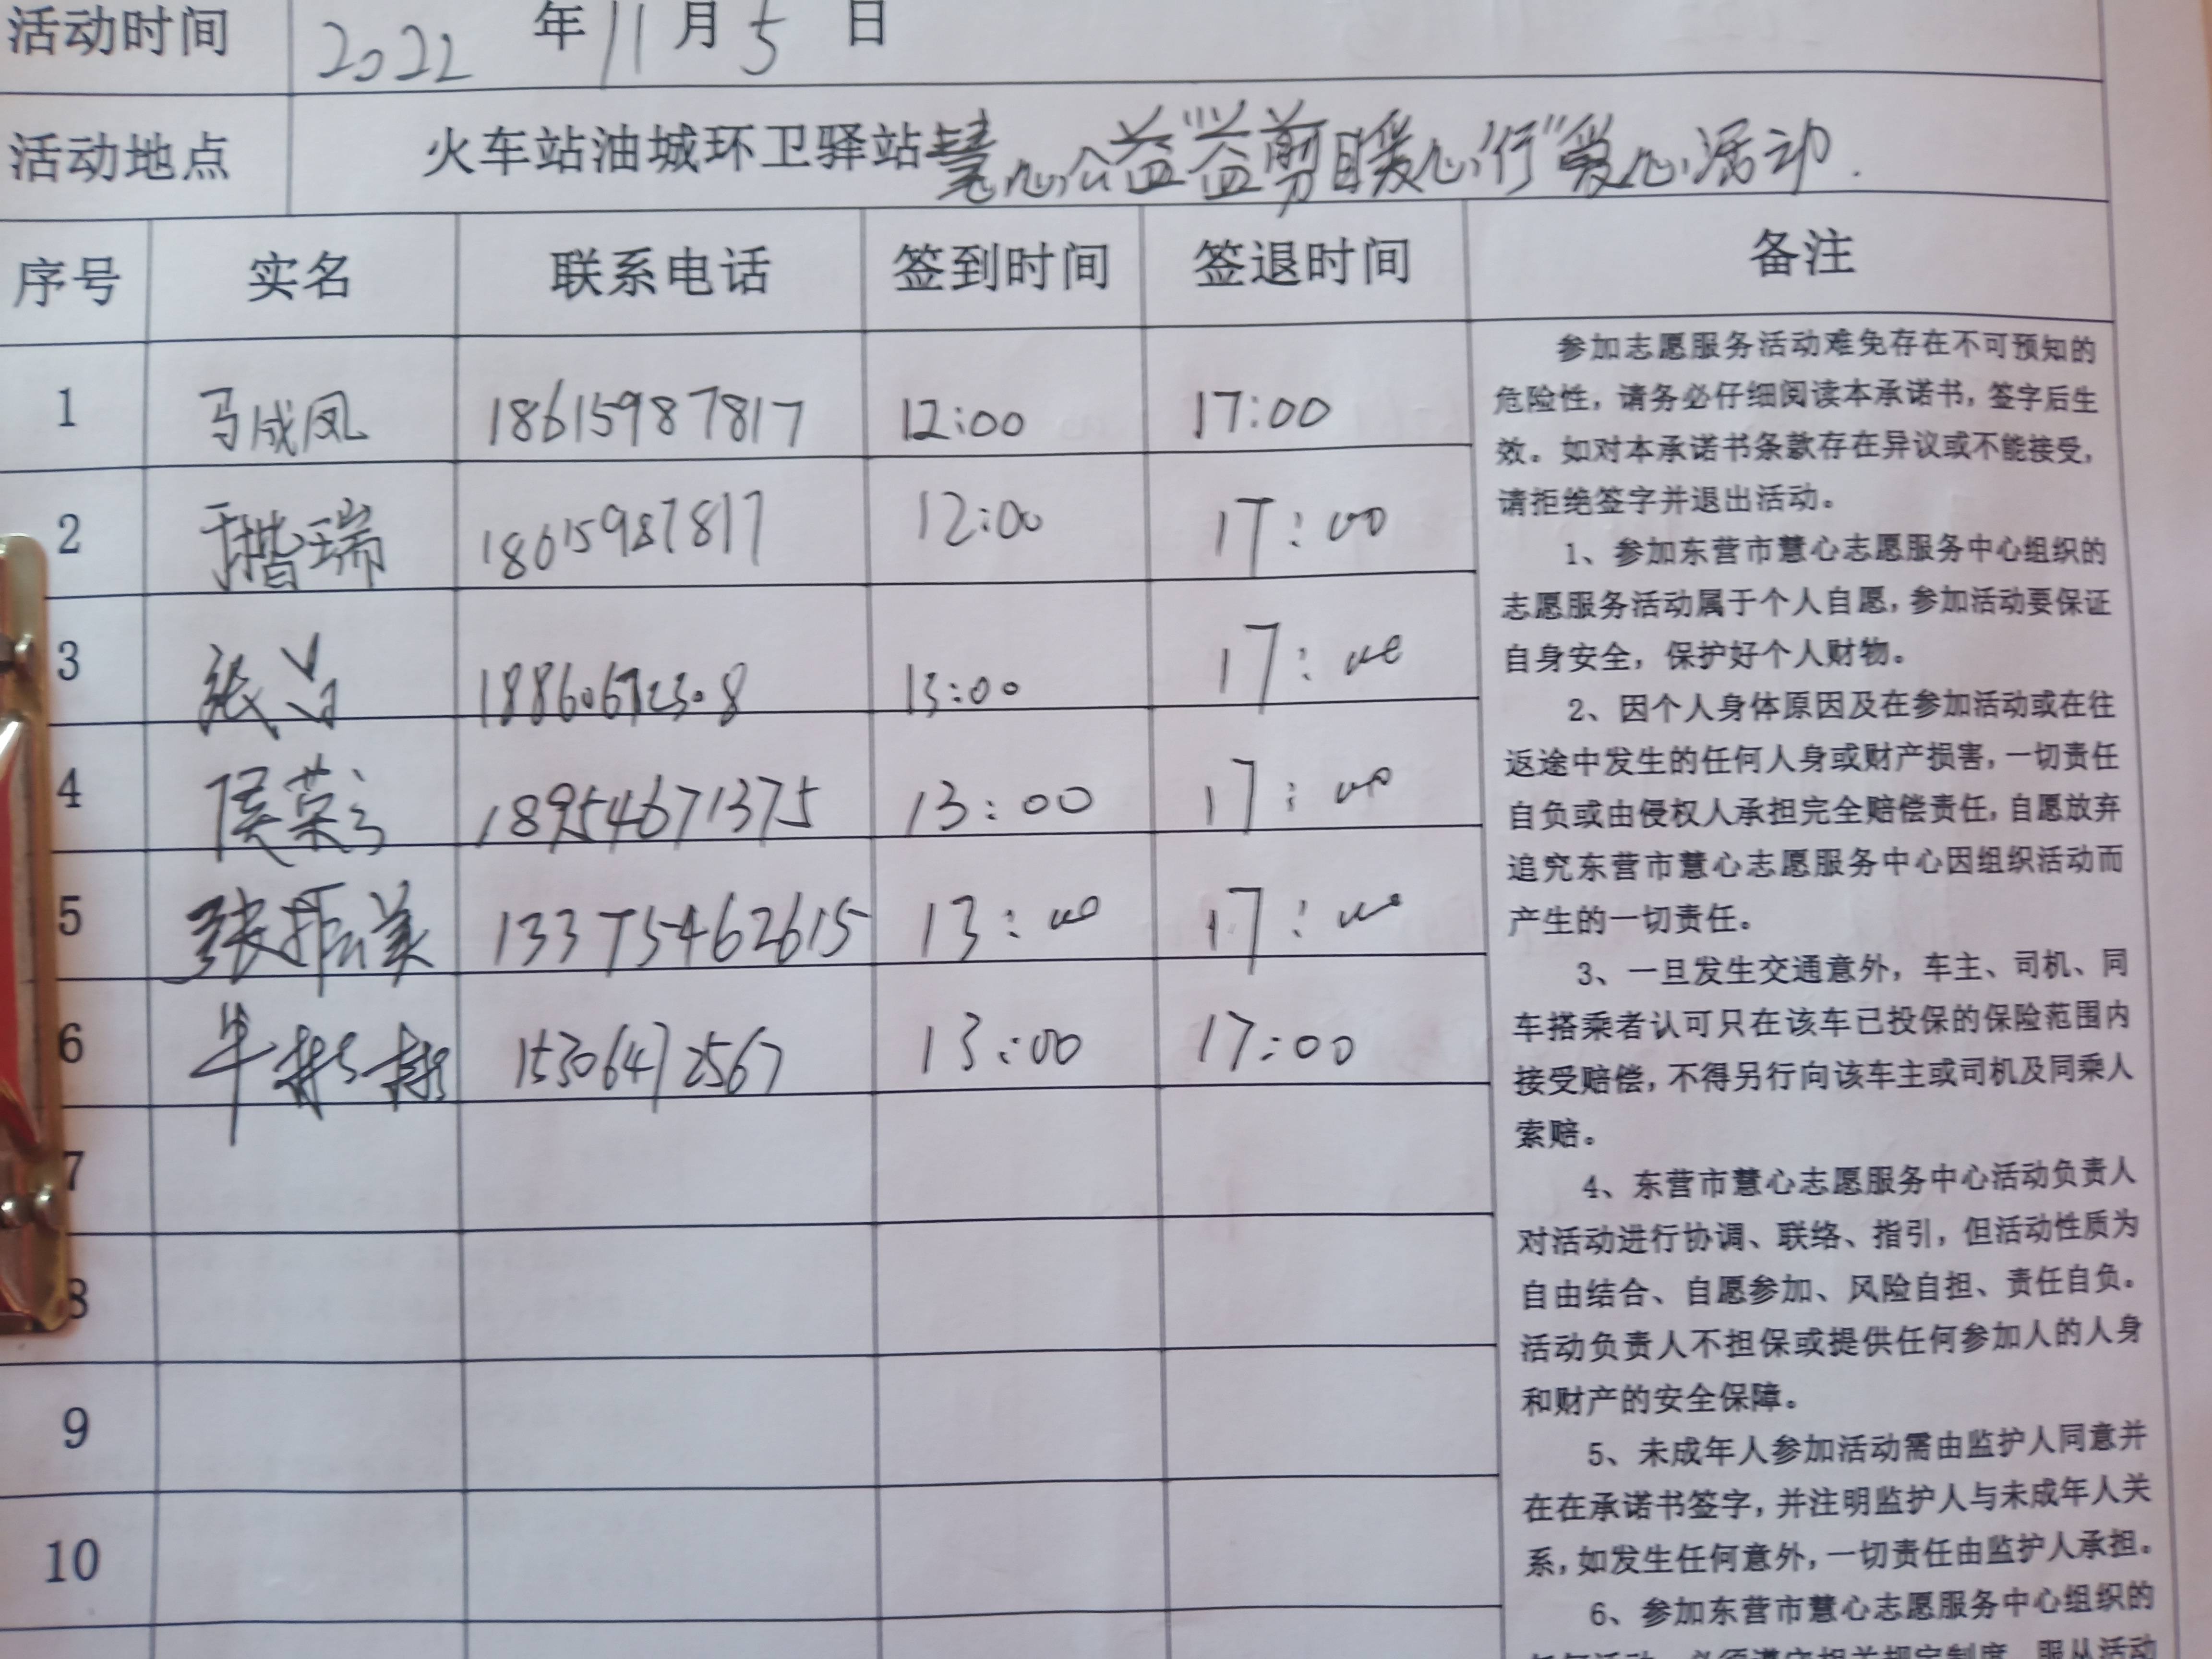 活动时间 2022 年 11 月 5 日
活动地点 火车站油城环卫驿站慧心公益"益剪暖心行"爱心活动.
序号 实名 联系电话 签到时间 签退时间 备注
1 马成凤 18615987817 12:00 17:00
2 瑞 18615987817 12:00 17:00
3 张 13:00 17:00
4 侯荣 18954671375 13:00 17:00
5 张振美 13375462615 13:00 17:00
6 牛 15306472567 13:00 17:00
7
8
9
10
参加志愿服务活动难免存在不可预知的
危险性，请务必仔细阅读本承诺书，签字后生
效。如对本承诺书条款存在异议或不能接受，
请拒绝签字并退出活动。
1、参加东营市慧心志愿服务中心组织的
志愿服务活动属于个人自愿，参加活动要保证
自身安全，保护好个人财物。
2、因个人身体原因及在参加活动或在往
返途中发生的任何人身或财产损害，一切责任
自负或由侵权人承担完全赔偿责任，自愿放弃
追究东营市慧心志愿服务中心因组织活动而
产生的一切责任。
3、一旦发生交通意外，车主、司机、同
车搭乘者认可只在该车已投保的保险范围内
接受赔偿，不得另行向该车主或司机及同乘人
索赔。
4、东营市慧心志愿服务中心活动负责人
对活动进行协调、联络、指引，但活动性质为
自由结合、自愿参加、风险自担、责任自负。
活动负责人不担保或提供任何参加人的人身
和财产的安全保障。
5、未成年人参加活动需由监护人同意并
在在承诺书签字，并注明监护人与未成年人关
系，如发生任何意外，一切责任由监护人承担。
6、参加东营市慧心志愿服务中心组织的